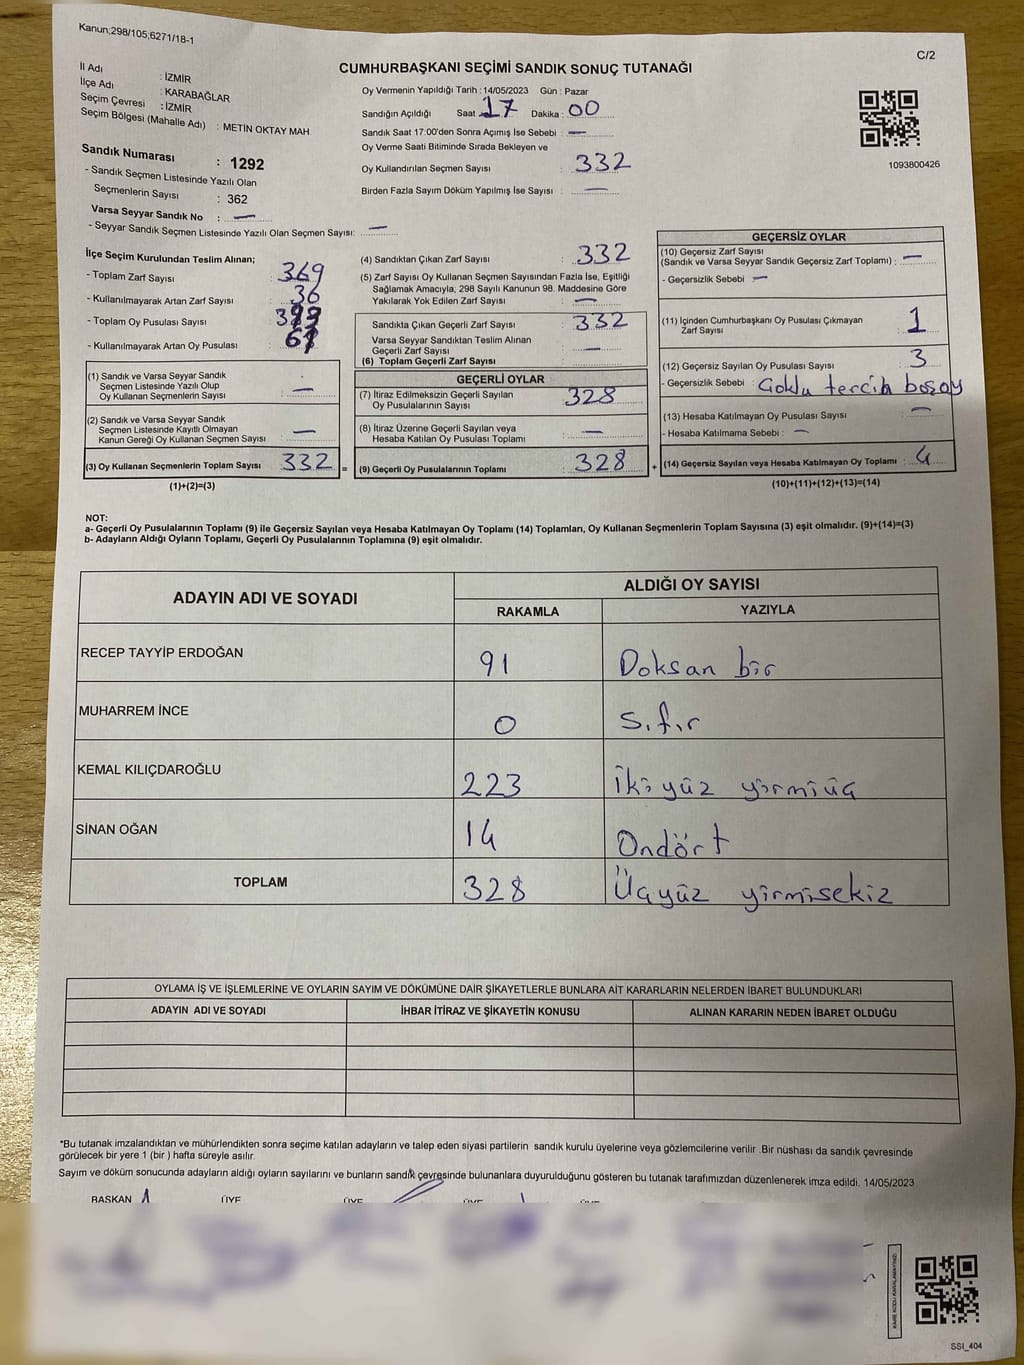 Kanun;298/105;6271/18-1
C/2
CUMHURBAŞKANI SEÇİMİ SANDIK SONUÇ TUTANAĞI
İl Adı : İZMİR
İlçe Adı : KARABAĞLAR
Seçim Çevresi : İZMİR
Seçim Bölgesi (Mahalle Adı) : METİN OKTAY MAH.
Sandık Numarası : 1292
- Sandık Seçmen Listesinde Yazılı Olan
Seçmenlerin Sayısı : 362
Varsa Seyyar Sandık No : —
- Seyyar Sandık Seçmen Listesinde Yazılı Olan Seçmen Sayısı: —
Oy Vermenin Yapıldığı Tarih : 14/05/2023 Gün : Pazar
Sandığın Açıldığı Saat 17 Dakika : 00
Sandık Saat 17:00'den Sonra Açımış İse Sebebi : —
Oy Verme Saati Bitiminde Sırada Bekleyen ve
Oy Kullandırılan Seçmen Sayısı : 332
Birden Fazla Sayım Döküm Yapılmış İse Sayısı : —
1093800426
İlçe Seçim Kurulundan Teslim Alınan;
- Toplam Zarf Sayısı : 369
- Kullanılmayarak Artan Zarf Sayısı : 36
- Toplam Oy Pusulası Sayısı :
- Kullanılmayarak Artan Oy Pusulası :
(1) Sandık ve Varsa Seyyar Sandık
Seçmen Listesinde Yazılı Olup
Oy Kullanan Seçmenlerin Sayısı : —
(2) Sandık ve Varsa Seyyar Sandık
Seçmen Listesinde Kayıtlı Olmayan
Kanun Gereği Oy Kullanan Seçmen Sayısı : —
(3) Oy Kullanan Seçmenlerin Toplam Sayısı : 332 =
(1)+(2)=(3)
(4) Sandıktan Çıkan Zarf Sayısı : 332
(5) Zarf Sayısı Oy Kullanan Seçmen Sayısından Fazla İse, Eşitliği
Sağlamak Amacıyla; 298 Sayılı Kanunun 98. Maddesine Göre
Yakılarak Yok Edilen Zarf Sayısı : —
Sandıkta Çıkan Geçerli Zarf Sayısı : 332
Varsa Seyyar Sandıktan Teslim Alınan
Geçerli Zarf Sayısı : —
(6) Toplam Geçerli Zarf Sayısı
GEÇERLİ OYLAR
(7) İtiraz Edilmeksizin Geçerli Sayılan
Oy Pusulalarının Sayısı : 328
(8) İtiraz Üzerine Geçerli Sayılan veya
Hesaba Katılan Oy Pusulası Toplamı : —
(9) Geçerli Oy Pusulalarının Toplamı : 328 +
GEÇERSİZ OYLAR
(10) Geçersiz Zarf Sayısı
(Sandık ve Varsa Seyyar Sandık Geçersiz Zarf Toplamı) : —
- Geçersizlik Sebebi : —
(11) İçinden Cumhurbaşkanı Oy Pusulası Çıkmayan
Zarf Sayısı : 1
(12) Geçersiz Sayılan Oy Pusulası Sayısı : 3
- Geçersizlik Sebebi : Çoklu tercih boşoy
(13) Hesaba Katılmayan Oy Pusulası Sayısı : —
- Hesaba Katılmama Sebebi : —
(14) Geçersiz Sayılan veya Hesaba Katılmayan Oy Toplamı : 4
(10)+(11)+(12)+(13)=(14)
NOT:
a- Geçerli Oy Pusulalarının Toplamı (9) ile Geçersiz Sayılan veya Hesaba Katılmayan Oy Toplamı (14) Toplamları, Oy Kullanan Seçmenlerin Toplam Sayısına (3) eşit olmalıdır. (9)+(14)=(3)
b- Adayların Aldığı Oyların Toplamı, Geçerli Oy Pusulalarının Toplamına (9) eşit olmalıdır.
ADAYIN ADI VE SOYADI
ALDIĞI OY SAYISI
RAKAMLA YAZIYLA
RECEP TAYYİP ERDOĞAN 91 Doksan bir
MUHARREM İNCE 0 Sıfır
KEMAL KILIÇDAROĞLU 223 İkiyüz yirmiüç
SİNAN OĞAN 14 Ondört
TOPLAM 328 Üçyüz yirmisekiz
OYLAMA İŞ VE İŞLEMLERİNE VE OYLARIN SAYIM VE DÖKÜMÜNE DAİR ŞİKAYETLERLE BUNLARA AİT KARARLARIN NELERDEN İBARET BULUNDUKLARI
ADAYIN ADI VE SOYADI İHBAR İTİRAZ VE ŞİKAYETİN KONUSU ALINAN KARARIN NEDEN İBARET OLDUĞU
*Bu tutanak imzalandıktan ve mühürlendikten sonra seçime katılan adayların ve talep eden siyasi partilerin sandık kurulu üyelerine veya gözlemcilerine verilir .Bir nüshası da sandık çevresinde
görülecek bir yere 1 (bir ) hafta süreyle asılır.
Sayım ve döküm sonucunda adayların aldığı oyların sayılarını ve bunların sandık çevresinde bulunanlara duyurulduğunu gösteren bu tutanak tarafımızdan düzenlenerek imza edildi. 14/05/2023
BAŞKAN ÜYE ÜYE ÜYE
SSI_404